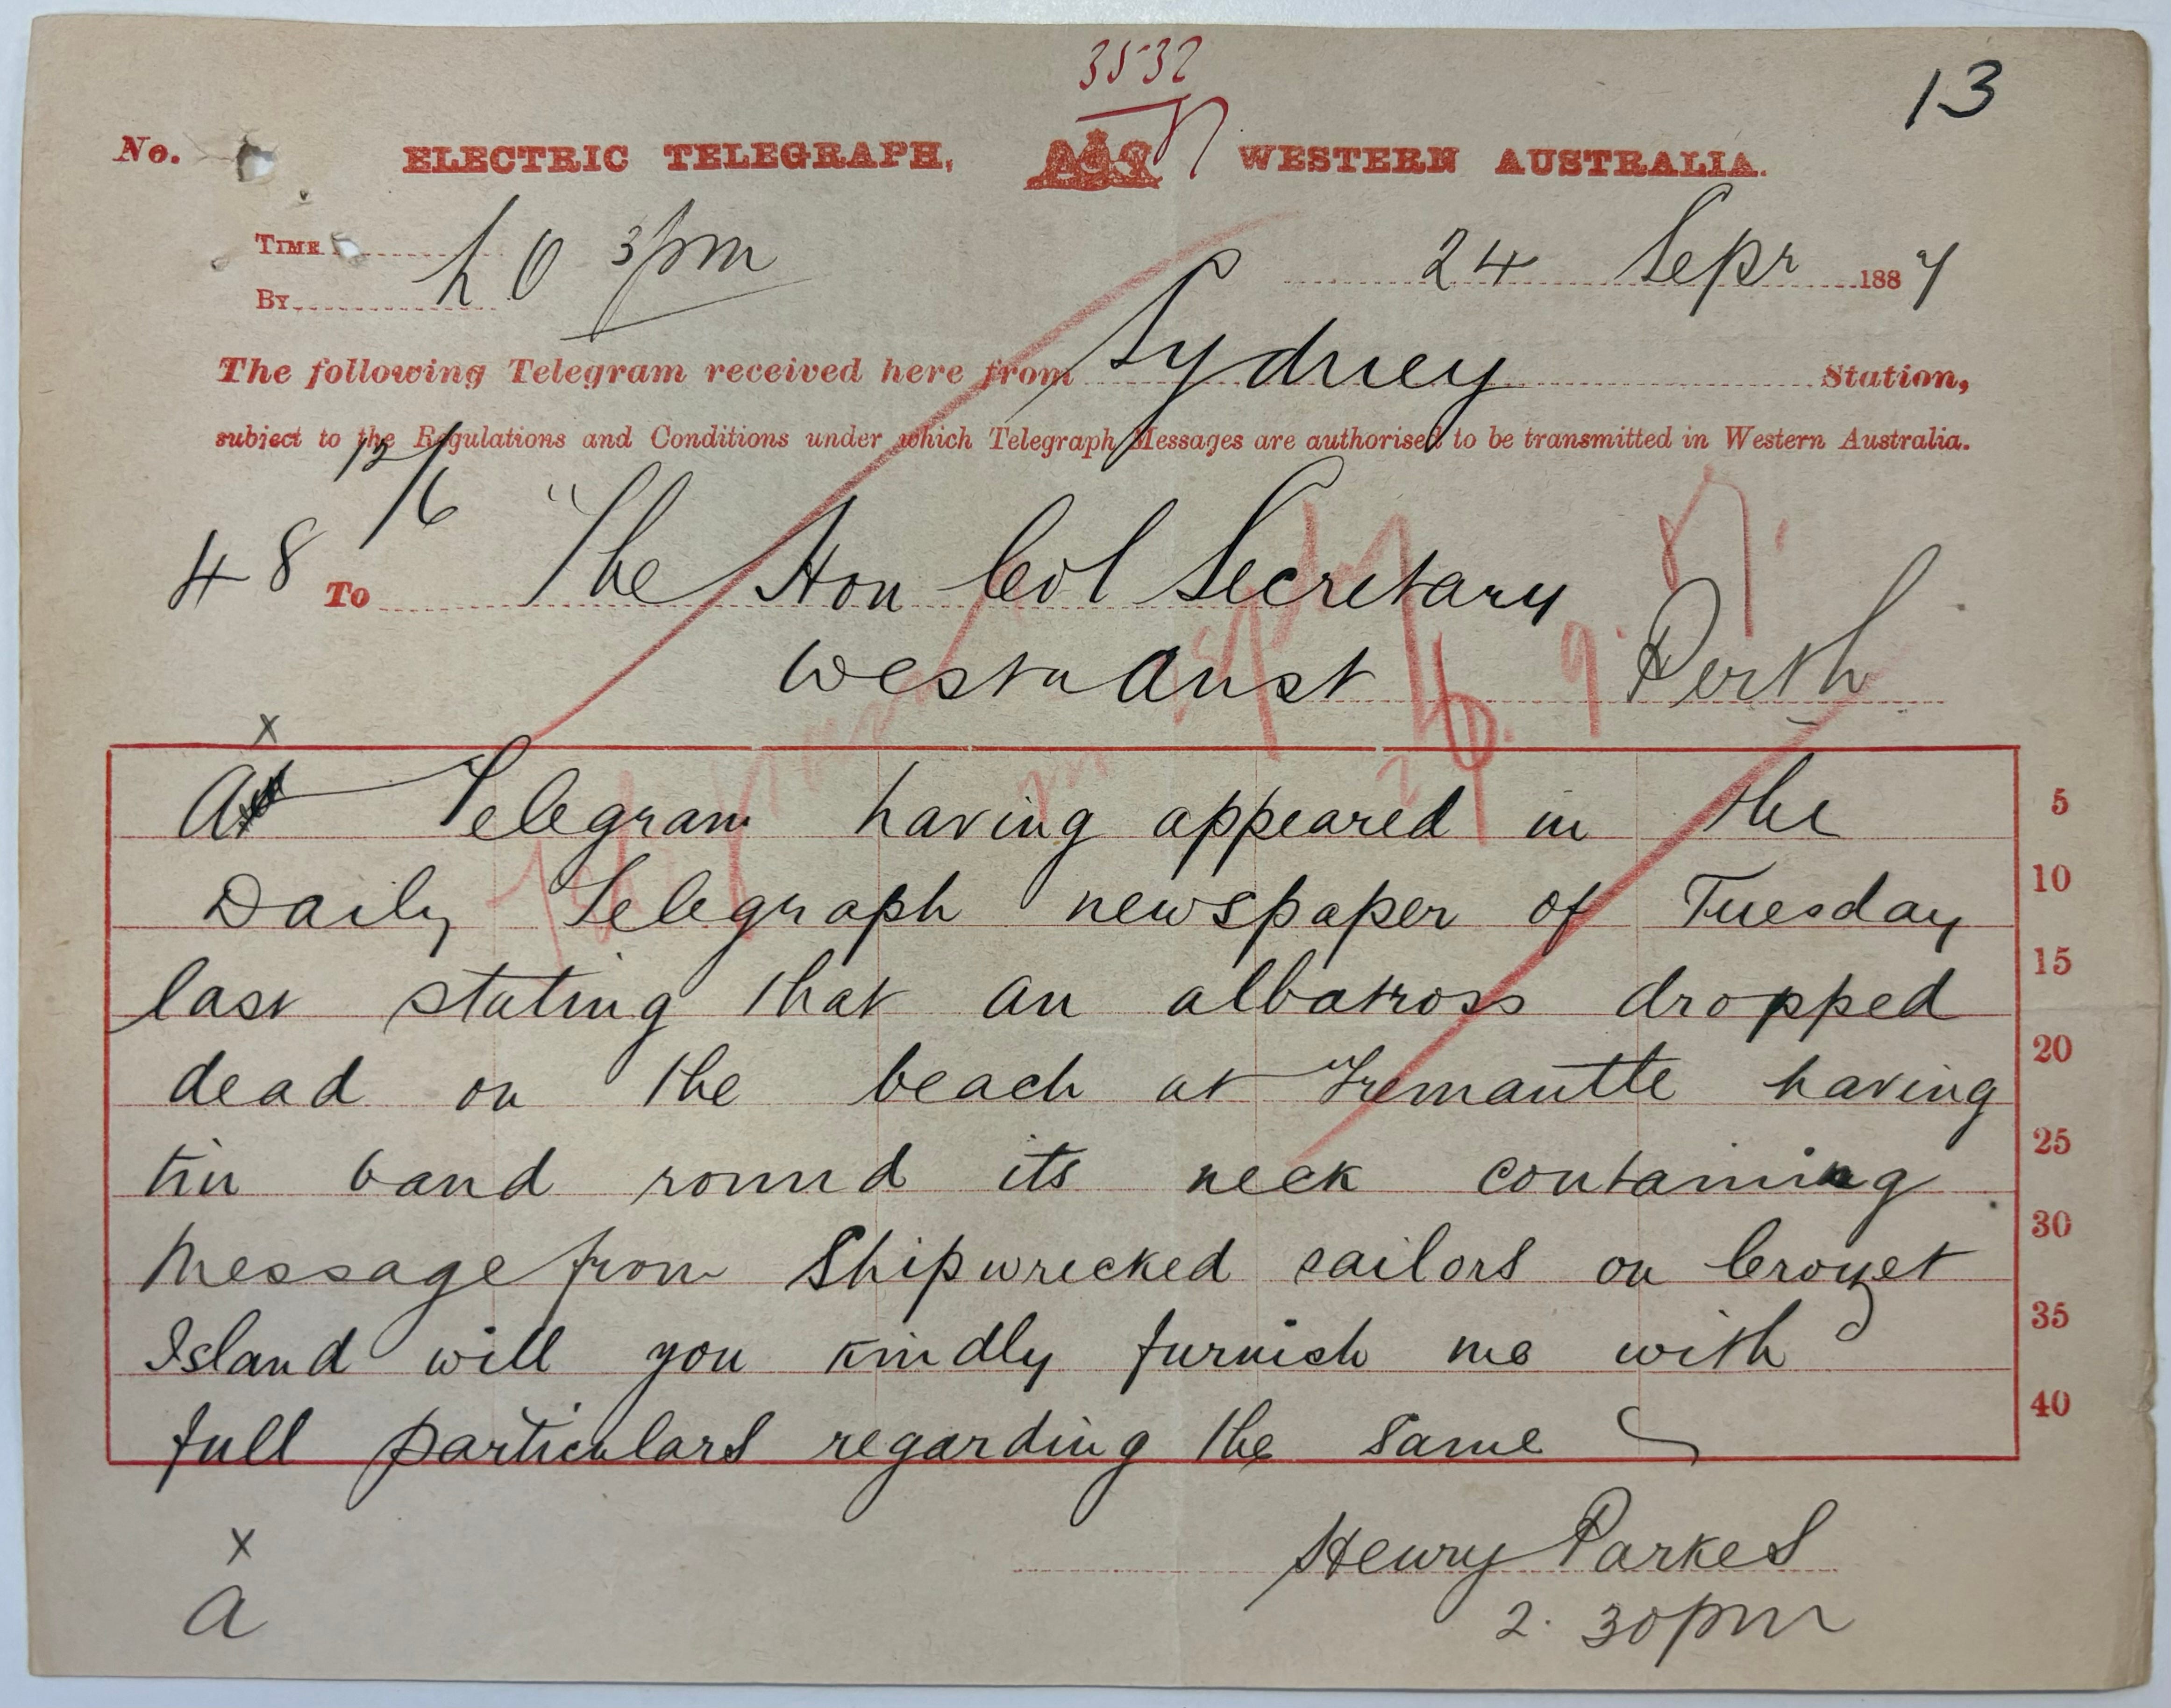 3537
13
No.
ELECTRIC TELEGRAPH, WESTERN AUSTRALIA.
TIME
3 pm
BY
24 Sepr 1887
The following Telegram received here from Sydney Station,
subject to the Regulations and Conditions under which Telegraph Messages are authorised to be transmitted in Western Australia.
12/6
48 To The Hon Col Secretary
Westn Aust Perth
26. 9. 87.
x
A Telegram having appeared in the 5
Daily Telegraph newspaper of Tuesday 10
last stating that an albatross dropped 15
dead on the beach at Fremantle having 20
tin band round its neck containing 25
Message from Shipwrecked sailors on Crozet 30
Island will you kindly furnish me with 35
full particulars regarding the same 40
Henry Parkes
x
a
2.30pm